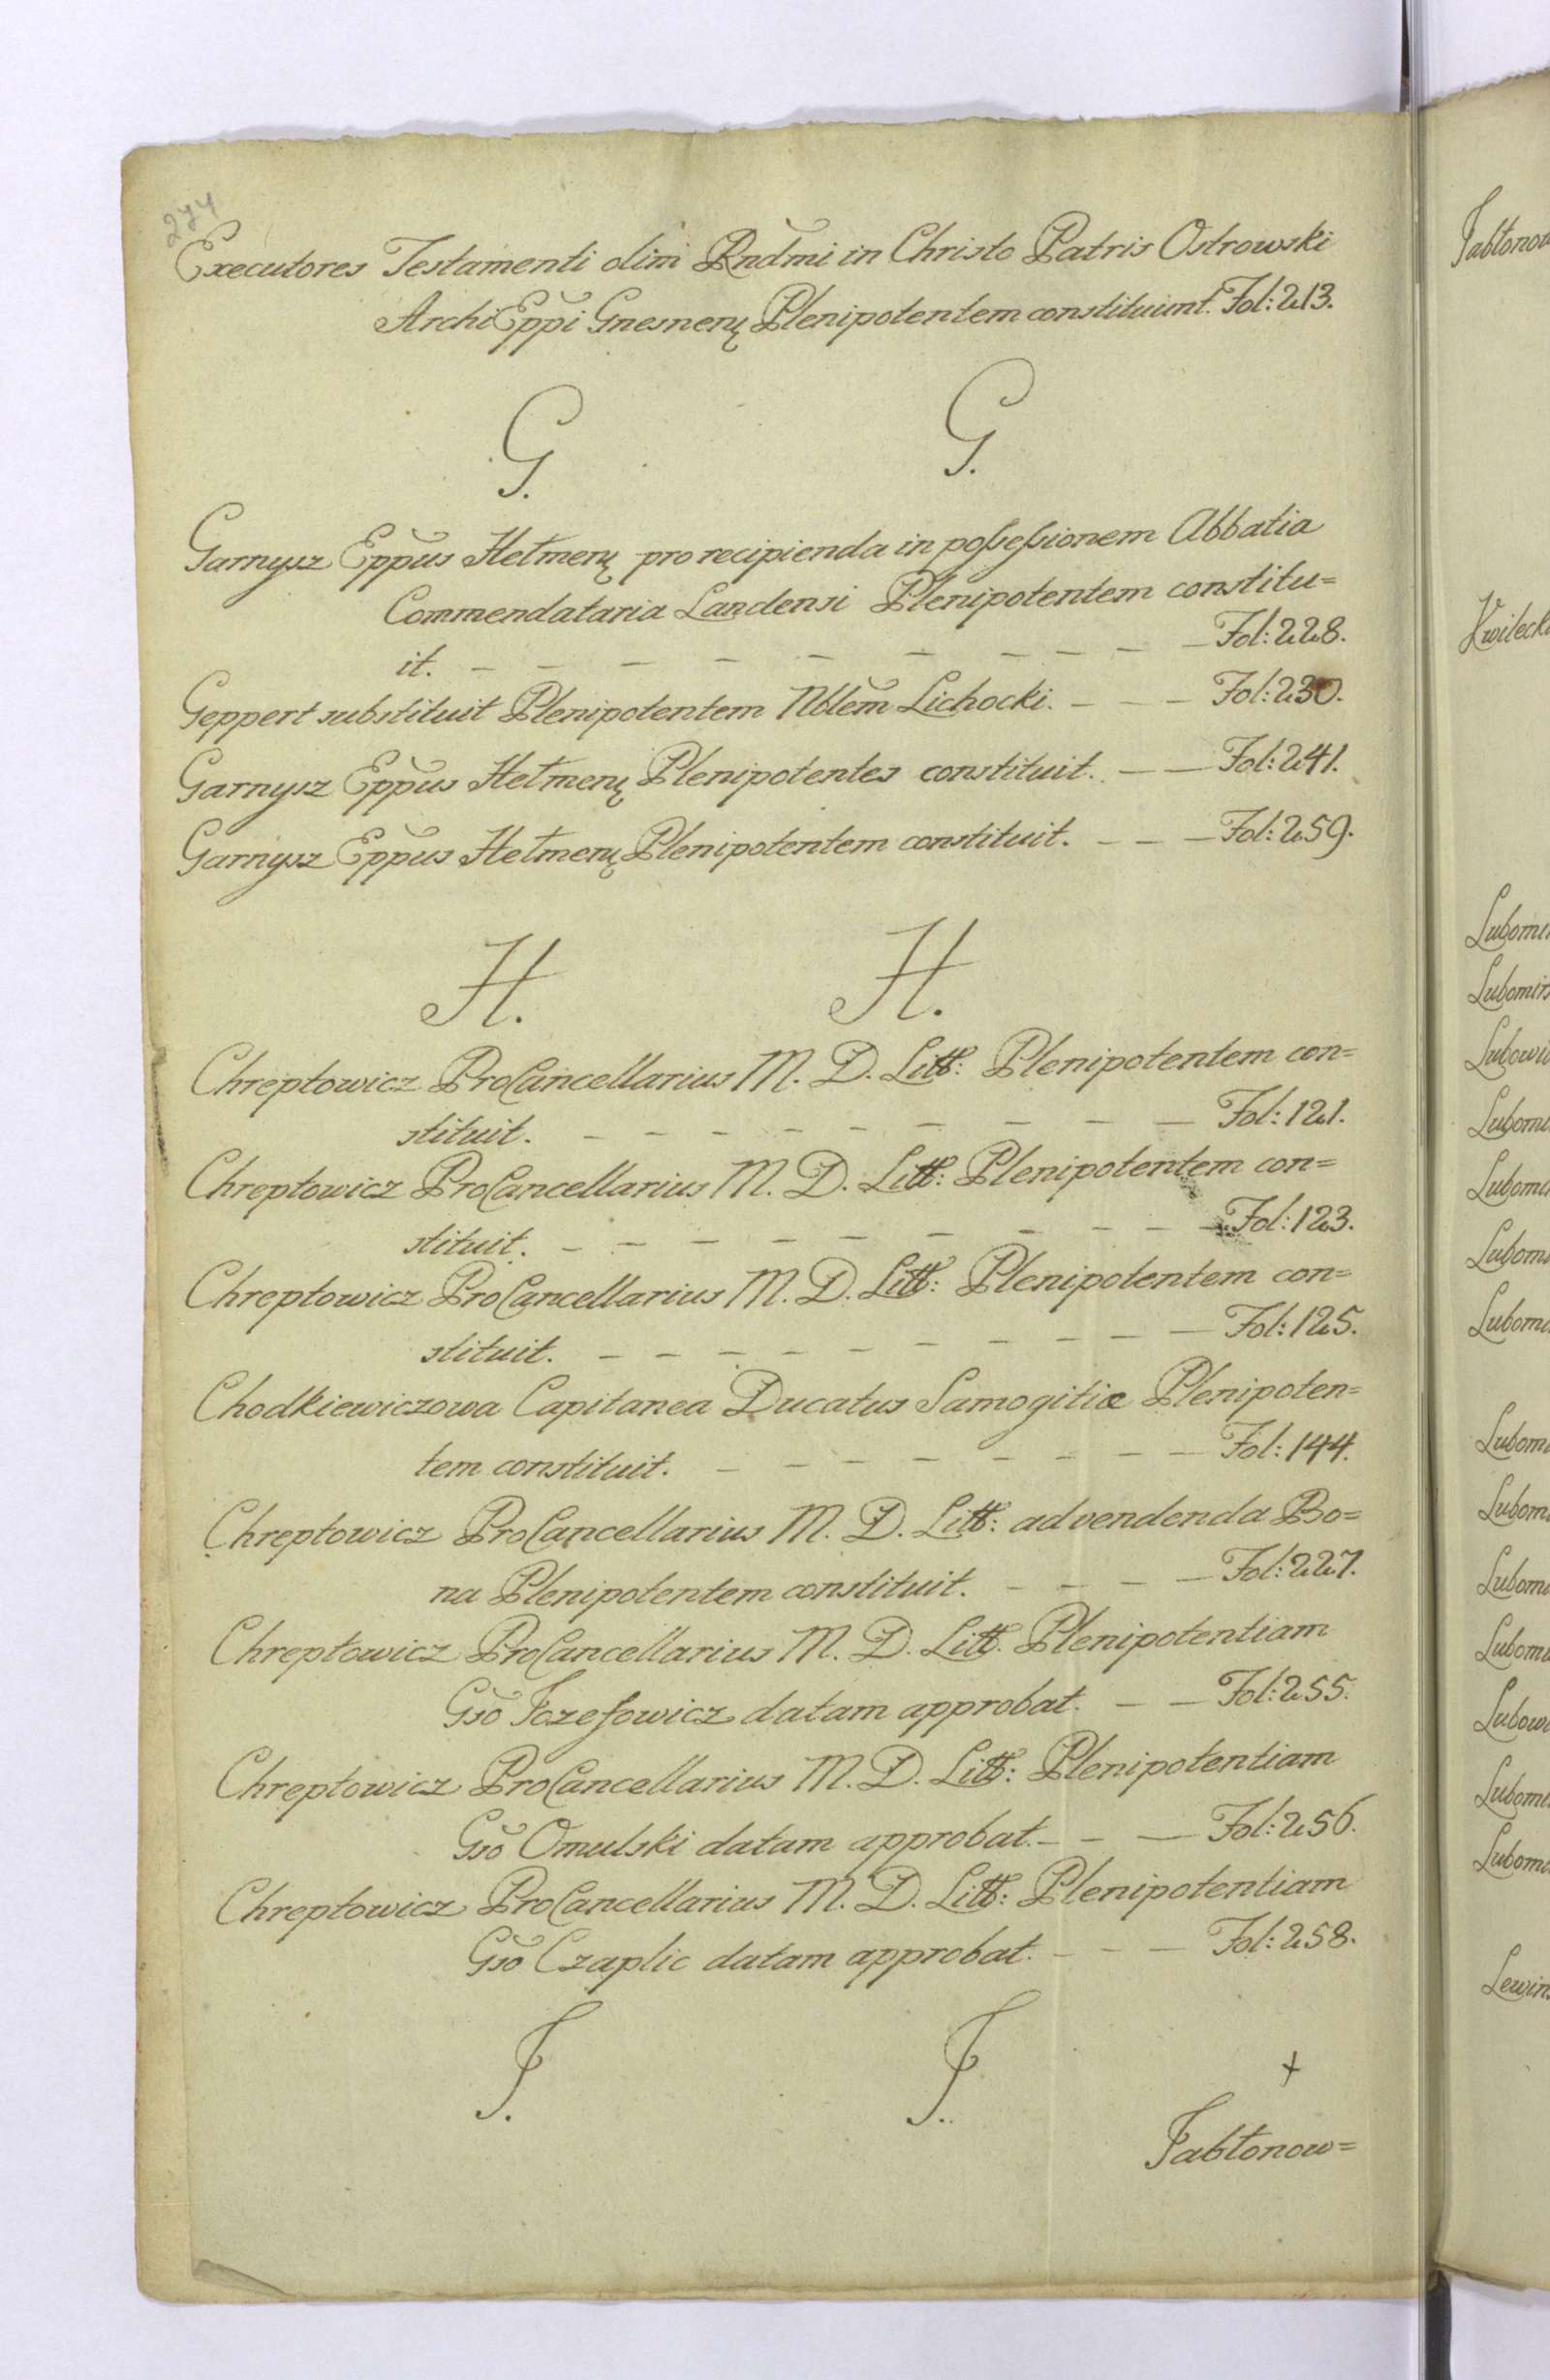 274
Executores Testamenti olim Rndmi in Christo Patris Ostrowski
ArchiEppi Gnesnen̄ Plenipotentem constituunt. Fol: 213.
G. G.
Garnysz Eppus Hełmen̄ pro recipienda in possessionem Abbatia
Commendataria Landensi Plenipotentem constitu=
it. — — — — — — — — — Fol: 228.
Geppert substituit Plenipotentem Nblem Lichocki. — — — Fol: 230.
Garnysz Eppus Hełmen̄ Plenipotentes constituit. — — Fol: 241.
Garnysz Eppus Hełmen̄ Plenipotentem constituit. — — — Fol: 259.
H. H.
Chreptowicz ProCancellarius M. D. Litt: Plenipotentem con=
stituit. — — — — — — — — — Fol: 121.
Chreptowicz ProCancellarius M. D. Litt: Plenipotentem con=
stituit. — — — — — — — — — Fol: 123.
Chreptowicz ProCancellarius M. D. Litt: Plenipotentem con=
stituit. — — — — — — — — — Fol: 125.
Chodkiewiczowa Capitanea Ducatus Samogitiæ Plenipoten=
tem constituit. — — — — — — — Fol: 144.
Chreptowicz ProCancellarius M. D. Litt: ad vendenda Bo=
na Plenipotentem constituit. — — — — Fol: 227.
Chreptowicz ProCancellarius M. D. Litt. Plenipotentiam
Gso Jozefowicz datam approbat. — — Fol: 255.
Chreptowicz ProCancellarius M. D. Litt: Plenipotentiam
Gso Omulski datam approbat. — — — Fol: 256.
Chreptowicz ProCancellarius M. D. Litt: Plenipotentiam
Gso Czaplic datam approbat. — — — Fol: 258.
J. J.
+
Jabłonow=
Jabłonow
Kwileck
Lubom
Lubomir
Lubow
Lubom
Lubom
Lubom
Lubom
Lubom
Lubom
Lubom
Lubom
Lubow
Lubom
Lubom
Lewin